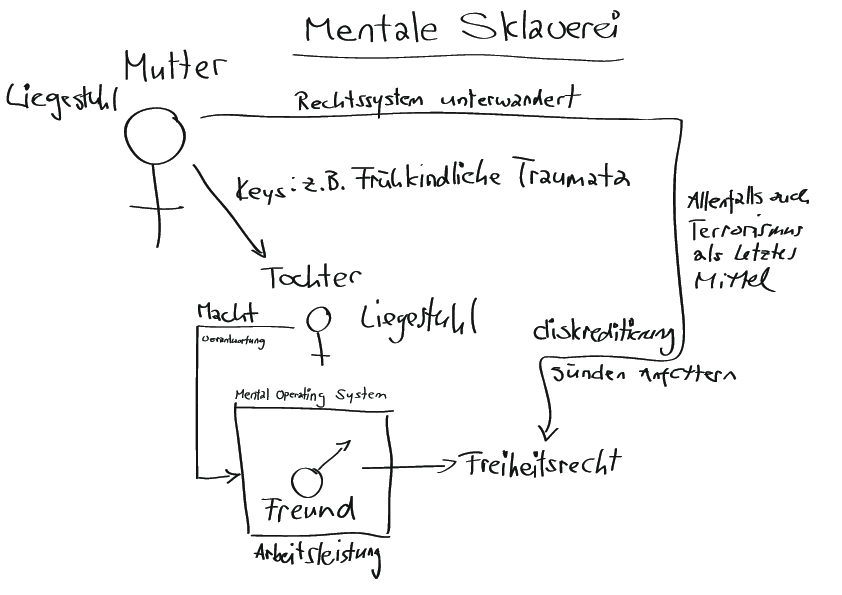 Mentale Sklaverei
Mutter
Liegestuhl
Rechtssystem unterwandert
Keys: z.B. Frühkindliche Traumata
Allenfalls auch
Terrorismus
als Letztes
Mittel
Tochter
Macht
Liegestuhl
Verantwortung
diskreditierung
Sünden Anfüttern
Mental Operating System
Freiheitsrecht
Freund
Arbeitsleistung